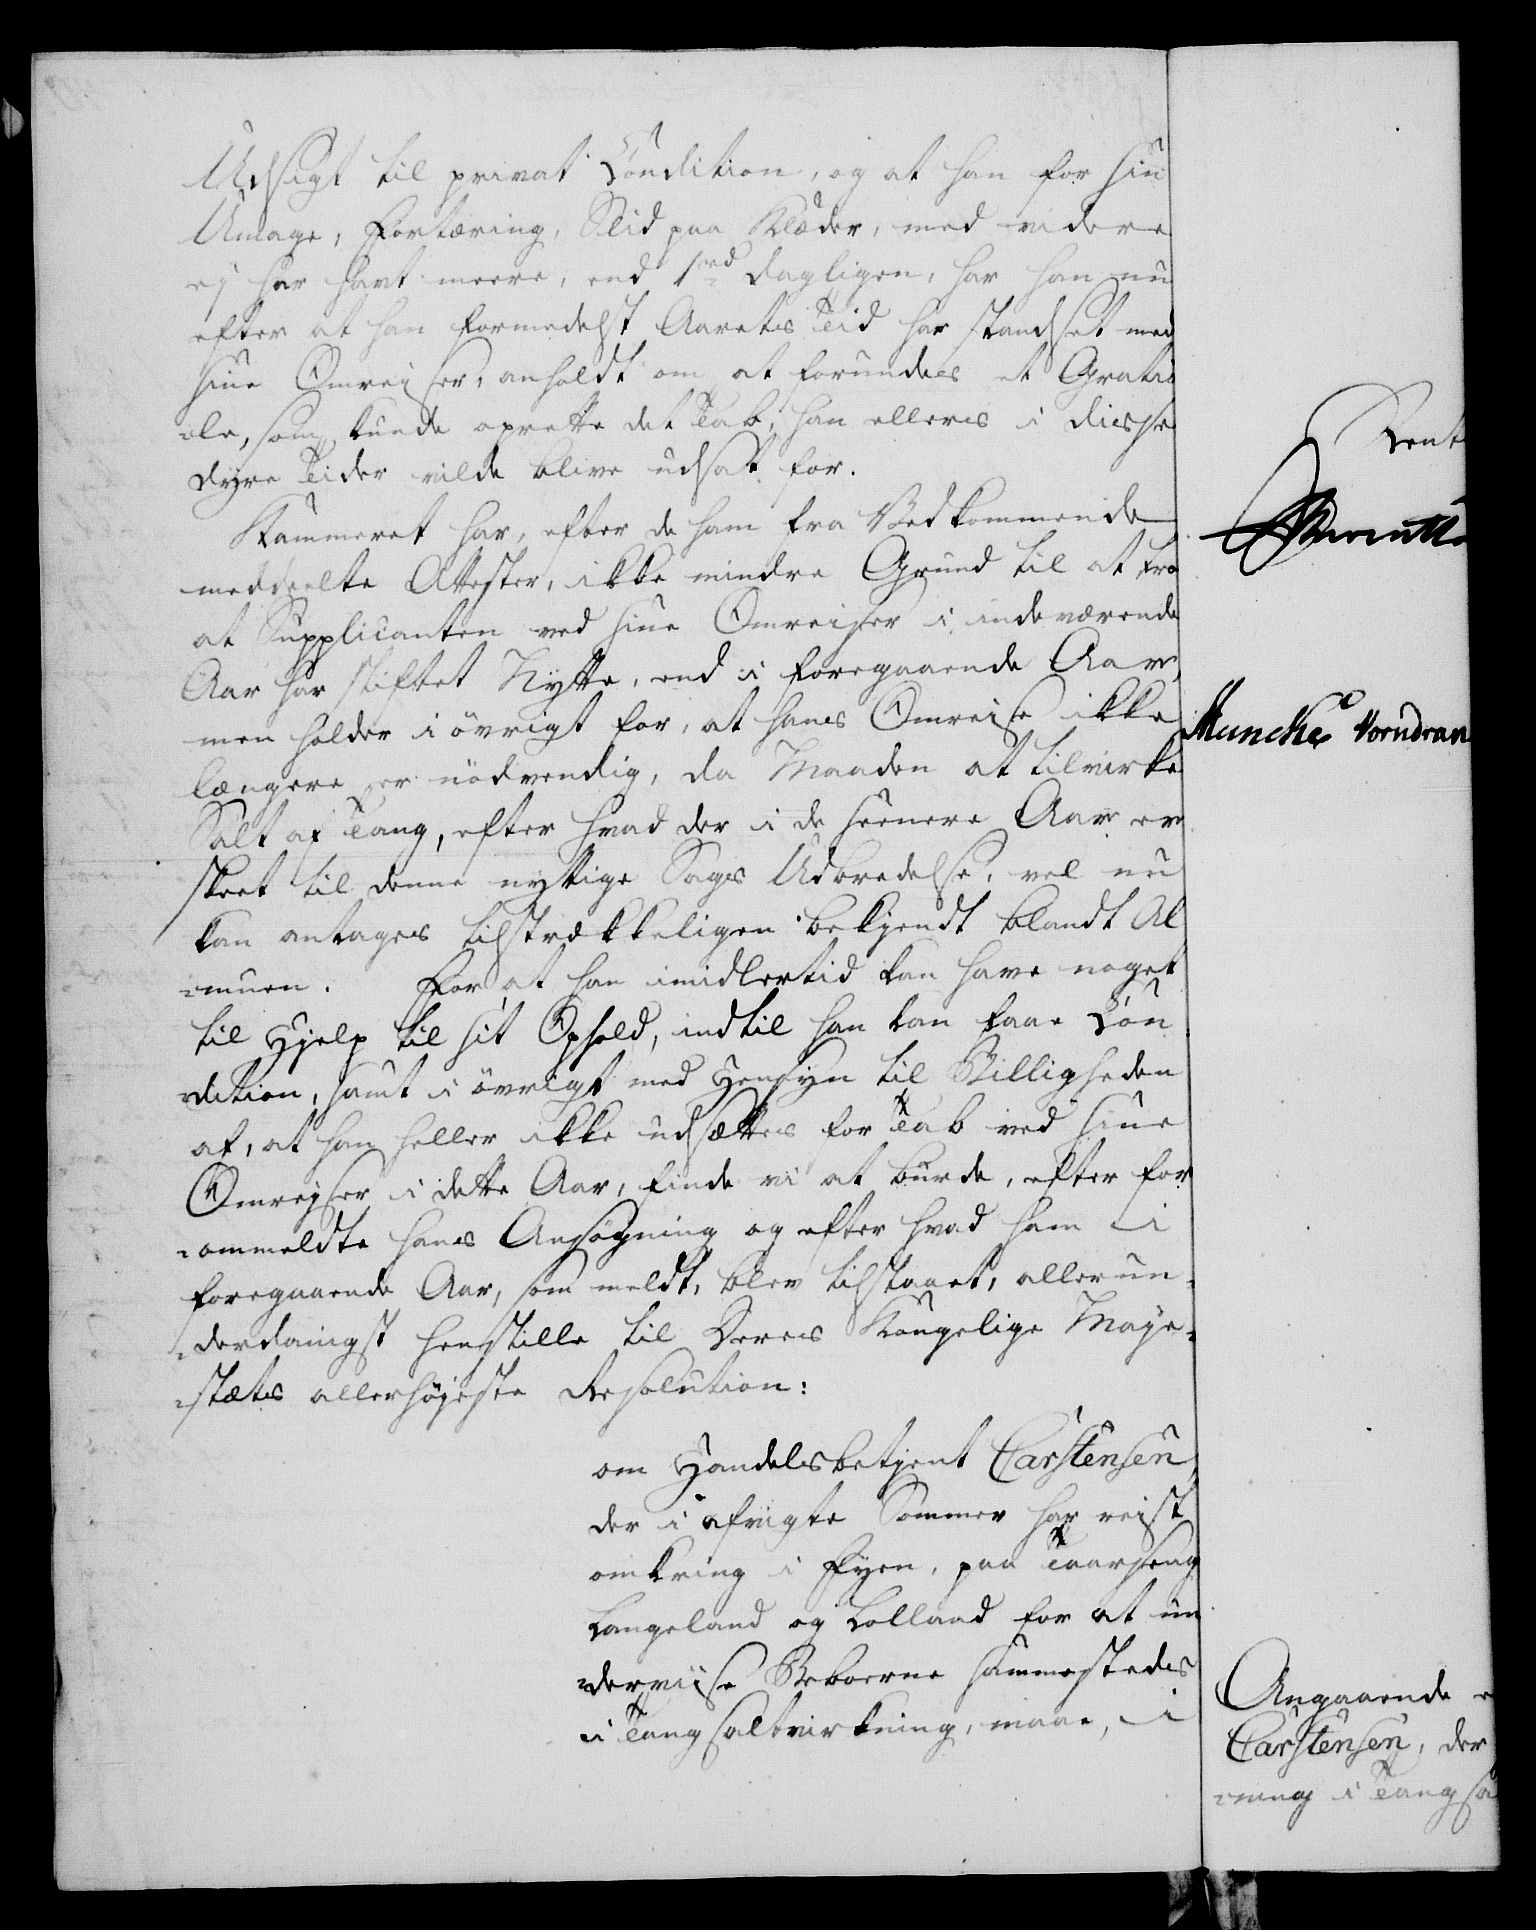 Udsigt til privat Condition, og at han for sin
Umage, Fortæring, Slid paa Klæder, med videre
ej har havt meere, end 1 rd dagligen, har han nu
efter at han formedelst Aarets Tid har standset med
sine Omrejser, anholdt om at forundes et Grati
ale, som kunde oprette det Tab, han ellers i disse
dyre Tider vilde blive udsat for.
Kammeret har, efter de ham fra Vedkommende
meddeelte Attester, ikke mindre Grund til at troe
at Supplicanten ved sine Omreiser i indeværende
Aar har stiftet Nytte, end i foregaaende Aar,
men holder i övrigt for, at hans Omreise ikke
længere er nödvendig, da Maaden at tilvirke
Salt af Tang, efter hvad der i de seenere Aar er
skeet til denne nyttige Sags Udbredelse, vel nu
kan antages tilstrækkeligen bekjendt blandt Al
muen. For at han imidlertid kan have noget
til Hjelp til sit Ophold, indtil han kan faae Con
dition, samt i övrigt med Hensyn til Billigheden
af, at han heller ikke udsættes for Tab ved sine
Omrejser i dette Aar, finde vi at burde, efter for
ommeldte hans Ansøgning og efter hvad ham i
foregaaende Aar, som meldt, blev tilstaaet, allerun-
derdanigst henstille til Deres Kongelige Maje-
stæts allerhöjeste Resolution:
om Handelsbetjent Carstensen,
der i afvigte Sommer har reist
omkring i Fyen, paa Taarseng
Langeland og Lolland for at un
derviise Beboerne sammestedes
i Tangsaltvirkning, maae, i
Rent
Munche Vorndran
Angaaende
Carstensen, der
ning i Tangsa